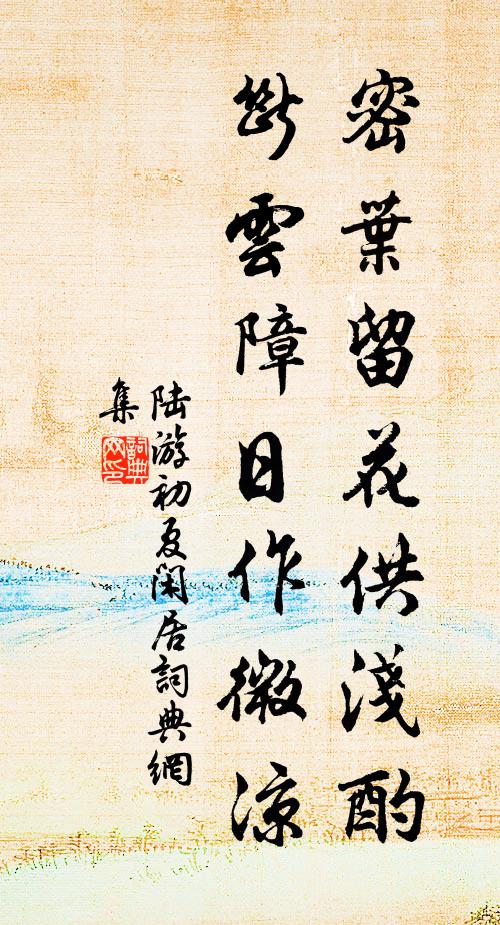 密葉留花供淺酌
断雲障日作微涼
陆游初夏閑居詞典網
集
詞典